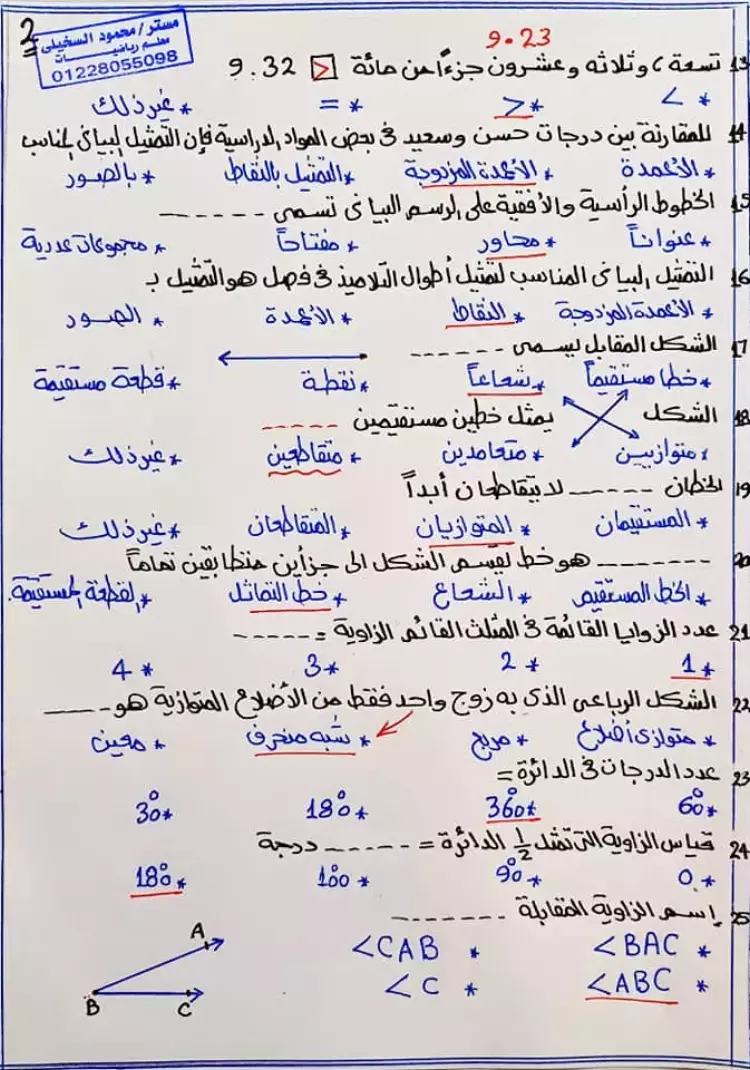 2
مستر/محمود السخيلى
معلم رياضيات
01228055098
9.23
13 تسعة، وثلاثه وعشرون جزءاً من مائة > 9.32
* < * > * = * غير ذلك
14 للمقارنة بين درجات حسن وسعيد فى بعض المواد الدراسية فإن التمثيل البيانى المناسب
* الأعمدة * الأعمدة المزدوجة * التمثيل بالنقاط * بالصور
15 الخطوط الرأسية والأفقية على الرسم البيانى تسمى ------
* عنواناً * محاور * مفتاحاً * مجموعات عددية
16 التمثيل البيانى المناسب لتمثيل أطوال التلاميذ فى فصل هو التمثيل بـ
* الأعمدة المزدوجة * النقاط * الأعمدة * الصور
17 الشكل المقابل يسمى ------
* خطا مستقيماً * شعاعاً * نقطة * قطعة مستقيمة
18 الشكل يمثل خطين مستقيمين ------
* متوازيين * متعامدين * متقاطعين * غير ذلك
19 الخطان ------ لا يتقاطعان أبداً
* المستقيمان * المتوازيان * المتقاطعان * غير ذلك
20 ------ هو خط يقسم الشكل الى جزأين متطابقين تماماً
* الخط المستقيم * الشعاع * خط التماثل * القطعة المستقيمة.
21 عدد الزوايا القائمة فى المثلث القائم الزاوية = ------
* 1 * 2 * 3 * 4
22 الشكل الرباعى الذى به زوج واحد فقط من الأضلاع المتوازية هو ------
* متوازى أضلاع * مربع * شبه منحرف * معين
23 عدد الدرجات فى الدائرة =
* 60° * 360° * 180° * 30°
24 قياس الزاوية التى تمثل ½ الدائرة = ------ درجة
* 0 * 90° * 100 * 180°
25 إسم الزاوية المقابلة ------
* <BAC * <CAB
* <ABC * <C
A
B
C